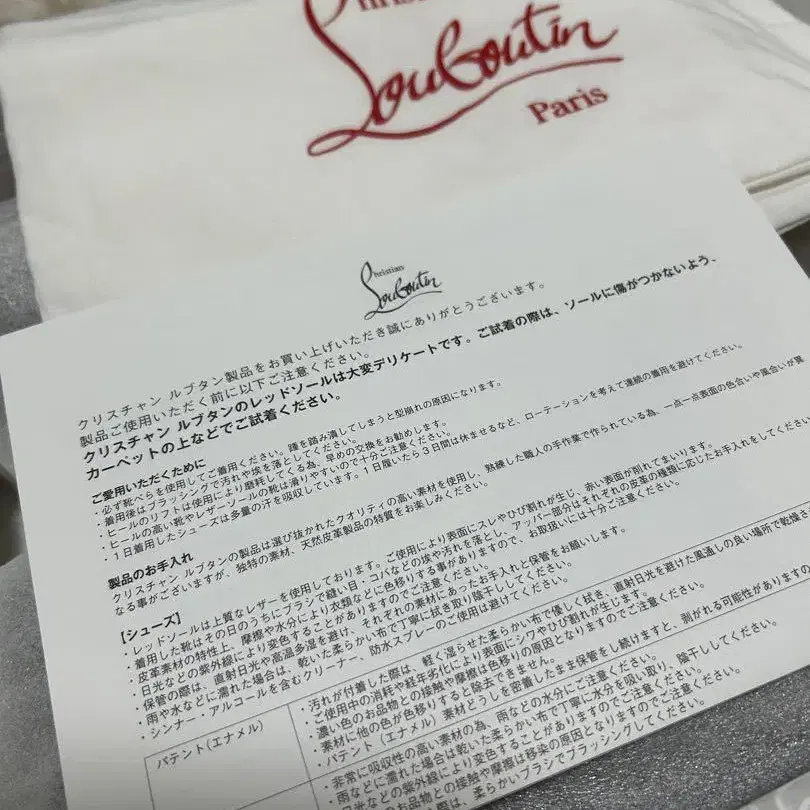 Christian
Louboutin
Paris
Christian
Louboutin
クリスチャン ルブタン製品をお買い上げいただき誠にありがとうございます。
製品ご使用いただく前に以下ご注意ください。
クリスチャン ルブタンのレッドソールは大変デリケートです。ご試着の際は、ソールに傷がつかないよう、
カーペットの上などでご試着ください。
ご愛用いただくために
・必ず靴べらを使用してご着用ください。踵を踏み潰してしまうと型崩れの原因になります。
・着用後はブラッシングで汚れや埃を落としてください。
・ヒールのリフトは使用により磨耗してくる為、早めの交換をお勧めします。
・ヒールの高い靴やレザーソールの靴は滑りやすいので十分ご注意ください。
・1日着用したシューズは多量の汗を吸収しています。1日履いたら3日間は休ませるなど、ローテーションを考えて連続の着用を避けてください。
製品のお手入れ
クリスチャン ルブタンの製品は選び抜かれたクオリティの高い素材を使用し、熟練した職人の手作業で作られている為、一点一点表面の色合いや風合いが異
なる事がございますが、独特の素材、天然皮革製品の特質をお楽しみください。
【シューズ】
・レッドソールは上質なレザーを使用しております。ご使用により表面にスレやひび割れが生じ、赤い表面が削れてまいります。
・着用した靴はその日のうちにブラシで縫い目・コバなどの埃や汚れを落とし、アッパー部分はそれぞれの皮革の種類に応じたお手入れをしてください
・皮革素材の特性上、摩擦や水分により衣類などに色移りする事がありますので、お取扱いには十分ご注意ください。
・日光などの紫外線により変色することがありますのでご注意ください。
・保管の際は、直射日光や高温多湿を避け、それぞれの素材にあったお手入れと保管をお願いします。
・雨や水などに濡れた場合は、乾いた柔らかい布で丁寧に拭き取り陰干ししてください。
・シンナー・アルコールを含むクリーナー、防水スプレーのご使用は避けてください。
パテント(エナメル)
・汚れが付着した際は、軽く湿らせた柔らかい布で優しく拭き、直射日光を避けた風通しの良い場所で乾燥さ
・ご使用中の消耗や経年劣化により表面にシワやひび割れが生じます。
・濃い色のお品物との接触や摩擦は色移りの原因となりますのでご注意ください。
・素材に他の色が色移りすると除去できません。
・パテント(エナメル)素材どうしを密着したまま保管をし続けますと、剥がれる可能性がありますの
・非常に吸収性の高い素材の為、雨などの水分にご注意ください。
・雨などに濡れた場合は乾いた柔らかい布で丁寧に水分を吸い取り、陰干ししてください。
・日光などの紫外線により変色することがありますのでご注意ください。
・お品物との接触や摩擦は移染の原因となりますのでご注意ください。
際は、柔らかいブラシでブラッシングしてください。